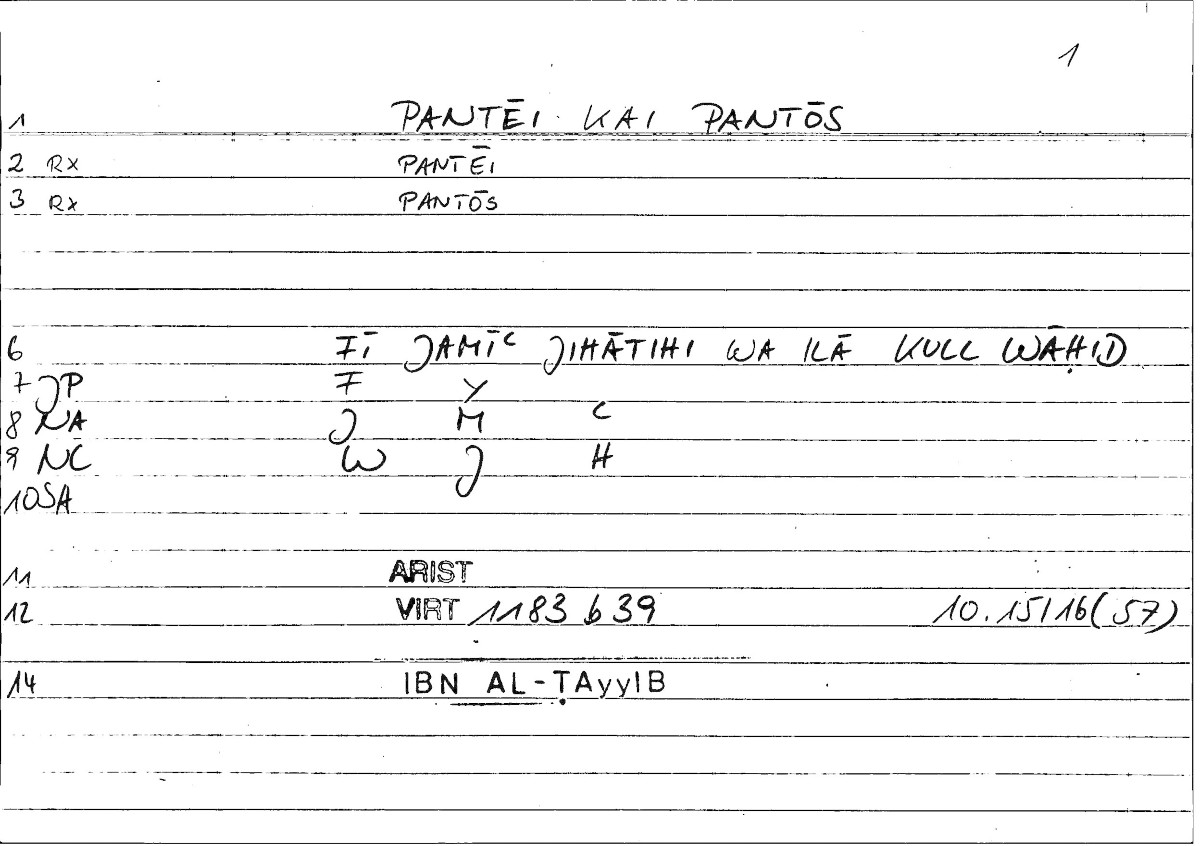 1
1 PANTĒI KAI PANTŌS
2 RX PANTĒI
3 RX PANTŌS
6 FĪ JAMĪC JIHĀTIHI WA ILĀ KULL WĀḤID
7 JP F Y
8 NA J M C
9 NC W J H
10 SA
11 ARIST
12 VIRT 1183 b 39 10.15/16 (57)
14 IBN AL-ṬAyyIB